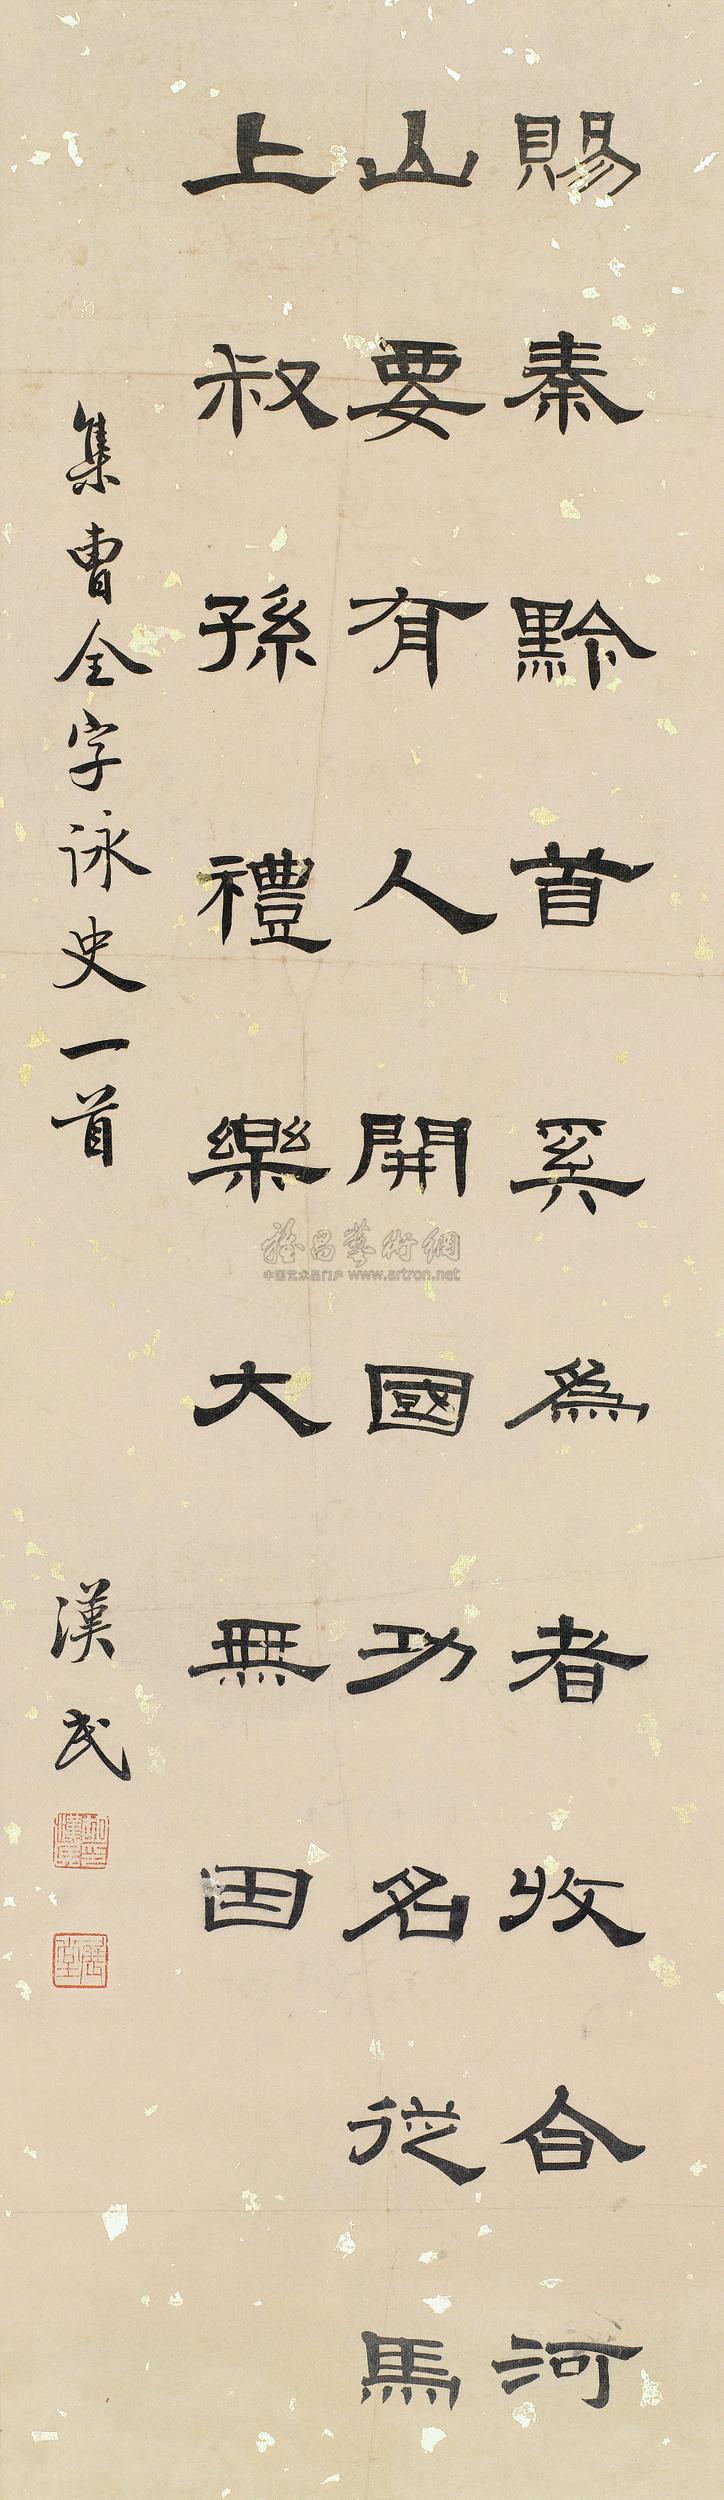 賜秦黔首奚為者收合河
山要有人開國功名從馬
上叔孫禮樂大無因
集曹全字詠史一首
漢民
雅昌藝術網
中国艺术品门户 www.artron.net